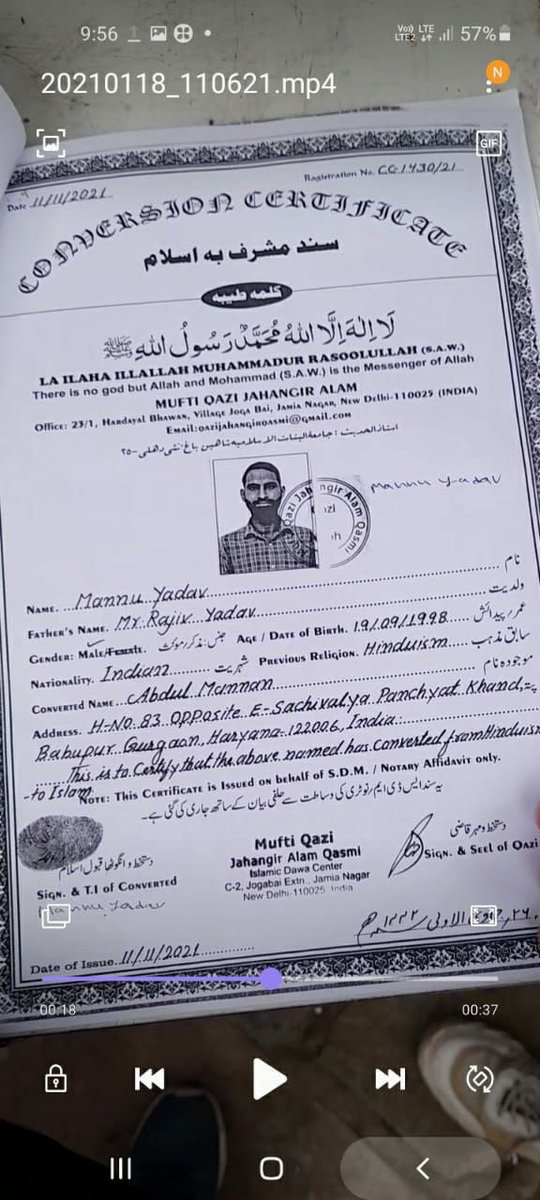 9:56
Vo)) LTE
LTE2 57%
20210118_110621.mp4
N
GIF
Date 11/11/2021
Registration No. CC1430/21
CONVERSION CERTIFICATE
سند مشرف به اسلام
كلمه طيبه
لَا اِلٰهَ اِلَّا اللهُ مُحَمَّدٌ رَسُولُ اللهِ ﷺ
LA ILAHA ILLALLAH MUHAMMADUR RASOOLULLAH (S.A.W.)
There is no god but Allah and Mohammad (S.A.W.) is the Messenger of Allah
MUFTI QAZI JAHANGIR ALAM
Office: 23/1, Hardayal Bhawan, Village Joga Bai, Jamia Nagar, New Delhi-110025 (INDIA)
Email:qazijahangirqasmi@gmail.com
استاذ الحديث: جامعة البنات الاسلاميه شاهين باغ نئی دهلی-۲۵
Qazi Jahangir Alam Qasmi
Mannu Yadav
Name. Mannu Yadav نام
Father's Name. Mr. Rajiv Yadav ولدیت
Gender: Male/Female. جنس: مذکر/مؤنث Age / Date of Birth. 19/09/1998 عمر/پیدائش
Nationality. Indian شہریت Previous Religion. Hinduism سابق مذہب
Converted Name. Abdul Mannan موجودہ نام
Address. H-No. 83 Opposite E-Sachivalya Panchyat Khand, پتہ
Babupur Gurgaon, Haryana-122006, India.
This is to Certify that the above named has converted from Hinduism
-to Islam.
Note: This Certificate is Issued on behalf of S.D.M. / Notary Affidavit only.
یہ سند ایس ڈی ایم/نوٹری کی وساطت سے حلفی بیان کے ساتھ جاری کی گئی ہے۔
دستخط و انگوٹھا قبول اسلام
Sign. & T.I of CONVERTED
Mannu Yadav
Mufti Qazi
Jahangir Alam Qasmi
Islamic Dawa Center
C-2, Jogabai Extn., Jamia Nagar
New Delhi-110025 India
دستخط و مہر قاضی
Sign. & Seel of Qazi
Date of Issue. 11/11/2021
00:18
00:37